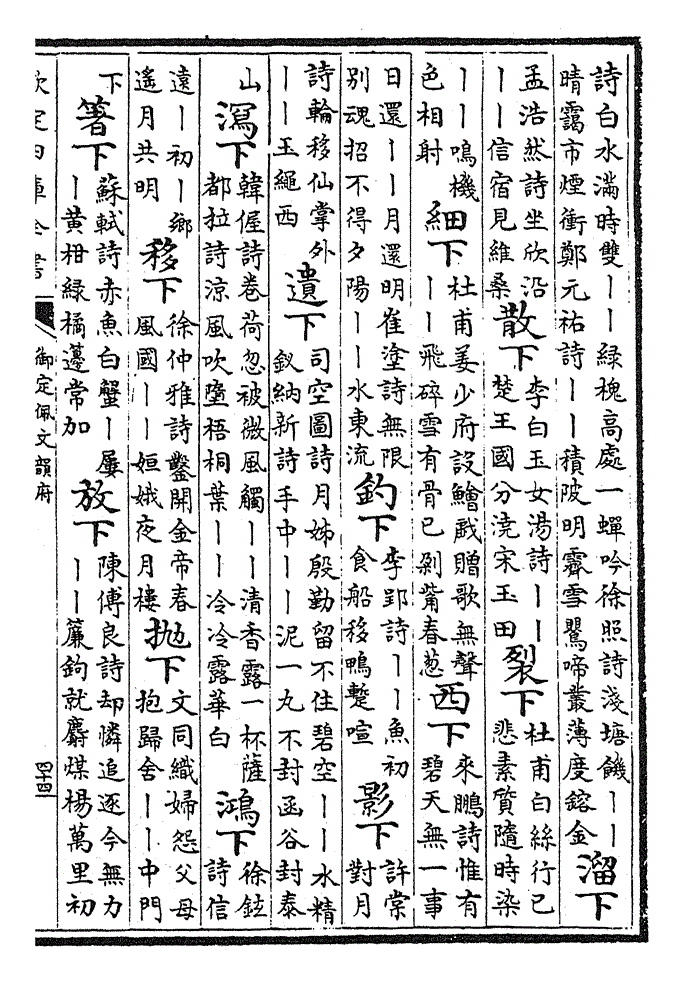 詩白水滿時雙丨丨綠槐高處一蟬吟徐照詩淺塘饑丨丨
晴靄市煙衝鄭元祐詩丨丨積陂明霽雪鸎啼叢薄度鎔金
溜下
孟浩然詩坐欣沿
丨丨信宿見維桑
散下
李白玉女湯詩丨丨
楚王國分澆宋玉田
裂下
杜甫白絲行已
悲素質隨時染
丨丨鳴機
色相射
細下
杜甫姜少府設鱠戲贈歌無聲
丨丨飛碎雪有骨已剁觜春葱
西下
來鵬詩惟有
碧天無一事
日還丨丨月還明崔塗詩無限
別魂招不得夕陽丨丨水東流
釣下
李郢詩丨丨魚初
食船移鴨蹔喧
影下
許棠
對月
詩輪移仙掌外
丨丨玉繩西
遺下
司空圖詩月姊殷勤留不住碧空丨丨水精
釵納新詩手中丨丨泥一丸不封函谷封泰
山
瀉下
韓偓詩卷荷忽被微風觸丨丨清香露一杯薩
都拉詩涼風吹墮梧桐葉丨丨冷冷露華白
鴻下
徐鉉
詩信
遠丨初丨鄉
遙月共明
移下
徐仲雅詩鑿開金帝春
風國丨丨姮娥夜月樓
拋下
文同織婦怨父母
抱歸舍丨丨中門
下
箸下
蘇軾詩赤魚白蟹丨屢
丨黃柑綠橘籩常加
放下
陳傅良詩却憐追逐今無力
丨丨簾鉤就麝煤楊萬里初
欽定四庫全書
御定佩文韻府
四十四